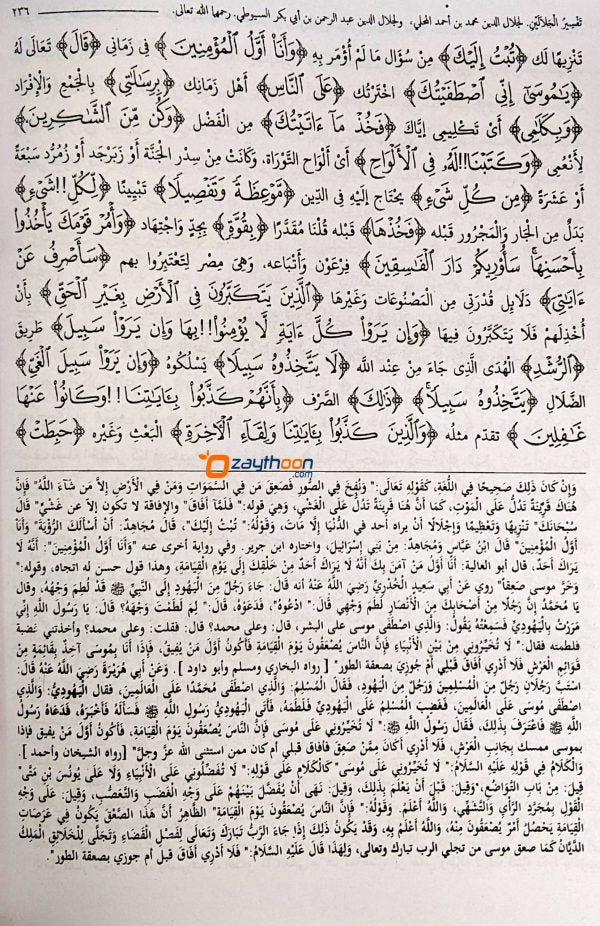 تَفْسِيرُ الْجَلَالَيْنِ. لجلال الدين محمد بن أحمد المحلي، ولجلال الدين عبد الرحمن بن أبي بكر السيوطي. رحمها الله تعالى. ٢٣٦
تَنْزِيهًا لَك ﴿تُبْتُ إِلَيْكَ﴾ مِنْ سُؤَال مَا لَمْ أُؤْمَر بِهِ ﴿وَأَنَا۠ أَوَّلُ ٱلْمُؤْمِنِينَ﴾ فِي زَمَانِي ﴿قَالَ﴾ تَعَالَى لَهُ
﴿يَـٰمُوسَىٰٓ إِنِّى ٱصْطَفَيْتُكَ﴾ اخْتَرْتُك ﴿عَلَى ٱلنَّاسِ﴾ أَهْل زَمَانك ﴿بِرِسَـٰلَـٰتِى﴾ بِالْجَمْعِ وَالْإِفْرَاد
﴿وَبِكَلَـٰمِى﴾ أَىْ تَكْلِيمِى إِيَّاكَ ﴿فَخُذْ مَآ ءَاتَيْتُكَ﴾ مِنْ الْفَضْل ﴿وَكُن مِّنَ ٱلشَّـٰكِرِينَ﴾
لِأَنْعُمِى ﴿وَكَتَبْنَا!!لَهُۥ فِى ٱلْأَلْوَاحِ﴾ أَىْ أَلْوَاح التَّوْرَاة، وَكَانَتْ مِنْ سِدْر الْجَنَّة أَوْ زَبَرْجَد أَوْ زُمُرُّد سَبْعَة
أَوْ عَشْرَة ﴿مِن كُلِّ شَىْءٍ﴾ يَحْتَاج إِلَيْهِ فِي الدِّين ﴿مَّوْعِظَةً وَتَفْصِيلًا﴾ تَبْيِينًا ﴿لِّكُلِّ!!شَىْءٍ﴾
بَدَلٌ مِنَ الجَارِ وَالْمَجْرُور قَبْله ﴿فَخُذْهَا﴾ قَبْله قُلْنَا مُقَدَّرًا ﴿بِقُوَّةٍ﴾ بِجِدٍّ وَاجْتِهَاد ﴿وَأْمُرْ قَوْمَكَ يَأْخُذُوا۟
بِأَحْسَنِهَا ۚ سَأُو۟رِيكُمْ دَارَ ٱلْفَـٰسِقِينَ﴾ فِرْعَوْن وَأَتْبَاعه، وَهِىَ مِصْر لِتَعْتَبِرُوا بهم ﴿سَأَصْرِفُ عَنْ
ءَايَـٰتِىَ﴾ دَلَائِل قُدْرَتِى مِن الْمَصْنُوعَات وَغَيْرهَا ﴿ٱلَّذِينَ يَتَكَبَّرُونَ فِى ٱلْأَرْضِ بِغَيْرِ ٱلْحَقِّ﴾ بِأَنْ
أَخْذِلهُمْ فَلَا يَتَكَبَّرُونَ فِيهَا ﴿وَإِن يَرَوْا۟ كُلَّ ءَايَةٍ لَّا يُؤْمِنُوا۟!!بِهَا وَإِن يَرَوْا۟ سَبِيلَ﴾ طَرِيق
﴿ٱلرُّشْدِ﴾ الْهُدَى الَّذِى جَاءَ مِنْ عِنْد اللَّه ﴿لَا يَتَّخِذُوهُ سَبِيلًا﴾ يَسْلُكُوهُ ﴿وَإِن يَرَوْا۟ سَبِيلَ ٱلْغَىِّ﴾
الضَّلَال ﴿يَتَّخِذُوهُ سَبِيلًا ۚ﴾ ﴿ذَٰلِكَ﴾ الصَّرْف ﴿بِأَنَّهُمْ كَذَّبُوا۟ بِـَٔايَـٰتِنَا!!وَكَانُوا۟ عَنْهَا
غَـٰفِلِينَ﴾ تقدّم مثله ﴿وَٱلَّذِينَ كَذَّبُوا۟ بِـَٔايَـٰتِنَا وَلِقَآءِ ٱلْـَٔاخِرَةِ﴾ الْبَعْث وَغَيْره ﴿حَبِطَتْ﴾
Ozaythoon.com
وَإِنْ كَانَ ذَلِكَ صَحِيحًا فِي اللُّغَةِ، كَقَوْلِهِ تَعَالَى:" وَنُفِخَ فِي الصُّورِ فَصَعِقَ مَن فِي السَّمَوَاتِ وَمَنْ فِي الْأَرْضِ إِلَّا مَن شَاءَ اللَّهُ" فَإِنَّ
هُنَاكَ قَرِينَةً تَدُلُّ عَلَى الْمَوْتِ، كَمَا أَنَّ هُنَا قَرِينَةً تَدُلُّ عَلَى الْغَشْيِ، وَهِيَ قوله:" فَلَمَّا أَفَاقَ" والإفاقة لا تكون إلا عن غَشْيٍ" قَالَ
سُبْحَانَكَ" تَنْزِيهًا وَتَعْظِيمًا وَإِجْلَالًا أن يراه أحد في الدُّنْيَا إِلَّا مَاتَ، وَقَوْلُهُ:" تُبْتُ إِلَيْكَ"، قَالَ مُجَاهِدٌ: أَنْ أَسْأَلَكَ الرُّؤْيَةَ" وَأَنَا
أَوَّلُ الْمُؤْمِنِينَ" قَالَ ابْنُ عَبَّاسٍ وَمُجَاهِدٌ: مِنْ بَنِي إِسْرَائِيلَ، واختاره ابن جرير. وفي رواية أخرى عنه "وَأَنَا أَوَّلُ الْمُؤْمِنِينَ": أَنَّهُ لَا
يَرَاكَ أَحَدٌ، قال أبو العالية: أَنَا أَوَّلُ مَنْ آمَنَ بِكَ أَنَّهُ لَا يَرَاكَ أَحَدٌ مِنْ خَلْقِكَ إِلَى يَوْمِ الْقِيَامَةِ، وهذا قول حسن له اتجاه، وقوله:"
وَخَرَّ مُوسَى صَعِقًا" روي عَنْ أبي سعيد الْخُدْرِيِّ رَضِيَ اللَّهُ عَنْهُ أنه قال: جَاءَ رَجُلٌ مِنَ الْيَهُودِ إِلَى النَّبِيِّ ﷺ قَدْ لُطِمَ وَجْهُهُ، وقال
يَا مُحَمَّدُ إِنَّ رَجُلًا مِنْ أَصْحَابِكَ مِنَ الْأَنْصَارِ لَطَمَ وَجْهِي قَالَ:" ادْعُوهُ"، فَدَعَوْهُ، قَالَ:" لِمَ لَطَمْتَ وَجْهَهُ؟ قَالَ: يَا رَسُولَ اللَّهِ إِنِّي
مَرَرْتُ بِالْيَهُودِيِّ فَسَمِعْتُهُ يَقُولُ: وَالَّذِي اصْطَفَى مُوسَى على البشر، قال: وعلى محمد؟ قال: فقلت: وعلى محمد؟ وأخذتني غضبة
فلطمته فقال:" لَا تُخَيِّرُونِي مِنْ بَيْنِ الْأَنْبِيَاءِ فَإِنَّ النَّاسَ يُصْعَقُونَ يَوْمَ الْقِيَامَةِ فَأَكُونُ أَوَّلَ مَنْ يُفِيقُ، فَإِذَا أَنَا بِمُوسَى آخِذٌ بِقَائِمَةٍ مِنْ
قَوَائِمِ الْعَرْشِ فَلَا أَدْرِي أَفَاقَ قَبْلِي أَمْ جُوزِيَ بِصَعقة الطور" [ رواه البخاري ومسلم وأبو داود ]. وَعَنْ أَبِي هُرَيْرَةَ رَضِيَ اللَّهُ عَنْهُ قَالَ:
اسْتَبَّ رَجُلَانِ رَجُلٌ مِنَ الْمُسْلِمِينَ وَرَجُلٌ مِنَ الْيَهُودِ، فَقَالَ الْمُسْلِمُ: وَالَّذِي اصْطَفَى مُحَمَّدًا عَلَى الْعَالَمِينَ، فقال الْيَهُودِيُّ: وَالَّذِي
اصْطَفَى مُوسَى عَلَى الْعَالَمِينَ، فَغَضِبَ الْمُسْلِمُ عَلَى الْيَهُودِيِّ فَلَطَمَهُ، فَأَتَى الْيَهُودِيُّ رَسُولَ اللَّهِ ﷺ فَسَأَلَهُ فَأَخْبَرَهُ، فَدَعَاهُ رَسُولُ
اللَّهِ ﷺ فَاعْتَرَفَ بِذَلِكَ، فَقَالَ رَسُولُ اللَّهِ ﷺ:" لَا تُخَيِّرُونِي عَلَى مُوسَى فَإِنَّ النَّاسَ يُصْعَقُونَ يَوْمَ الْقِيَامَةِ، فَأَكُونُ أَوَّلَ مَنْ يفيق فإذا
بموسى ممسك بِجَانِبِ الْعَرْشِ، فَلَا أَدْرِي أَكَانَ مِمَّنْ صَعِقَ فأفاق قبلي أم كان ممن استثنى الله عزّ وجلّ" [رواه الشيخان وأحمد ].
وَالْكَلَامُ فِي قَوْلِهِ عَلَيْهِ السَّلَامُ:" لَا تُخَيِّرُونِي عَلَى مُوسَى" كَالْكَلَامِ عَلَى قَوْلِهِ:" لَا تُفَضِّلُونِي عَلَى الْأَنْبِيَاءِ وَلَا عَلَى يُونُسَ بْنِ مَتَّى"
قِيلَ: مِنْ بَابِ التَّوَاضُعِ، "وَقِيلَ: قَبْلَ أَنْ يَعْلَمَ بِذَلِكَ، وَقِيلَ: نَهَى أَنْ يُفَضَّلَ بَيْنَهُمْ عَلَى وَجْهِ الْغَضَبِ وَالتَّعَصُّبِ، وَقِيلَ: عَلَى وَجْهِ
الْقَوْلِ بِمُجَرَّدِ الرَّأْيِ وَالتَّشَهِّي، وَاللَّهُ أَعْلَمُ. وَقَوْلُهُ:" فَإِنَّ النَّاسَ يُصْعَقُونَ يَوْمَ الْقِيَامَةِ" الظَّاهِرُ أَنَّ هَذَا الصَّعْقَ يَكُونُ فِي عَرَصَاتِ
الْقِيَامَةِ يَحْصُلُ أَمْرٌ يُصْعَقُونَ مِنْهُ، وَاللَّهُ أَعْلَمُ بِهِ، وَقَدْ يَكُونُ ذَلِكَ إِذَا جَاءَ الرَّبُّ تَبَارَكَ وَتَعَالَى لِفَصْلِ الْقَضَاءِ وَتَجَلَّى لِلْخَلَائِقِ الْمَلِكُ
الدَّيَّانُ كَمَا صعق موسى من تجلي الرب تبارك وتعالى، وَلِهَذَا قَالَ عَلَيْهِ السَّلَامُ:" فَلَا أَدْرِي أَفَاقَ قبلي أم جوزي بصعقة الطور".